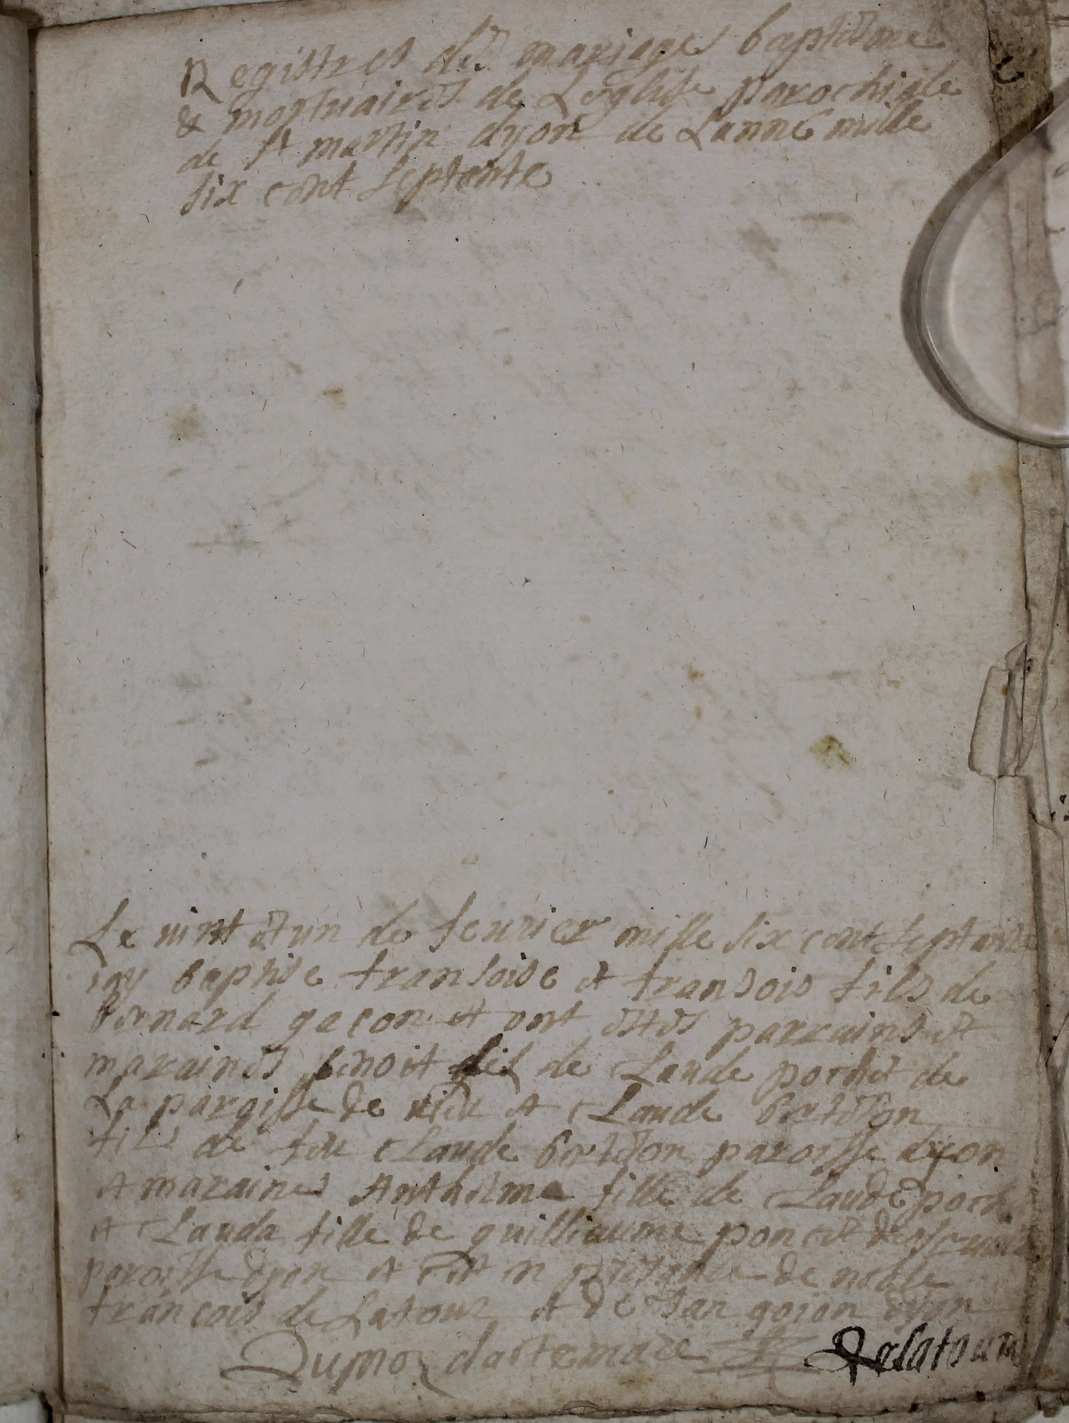 Registres des mariages baptesme
& mortuaires de Leglise parochiale
de st martin dyon de Lanné mille
six cent septante
Le vint et un de feurier mille six cent septante
iay baptise fransoise et fransois fils de
bernard gacon et ont estes parrains et
maraines benoit fils de Claude pochet de
La paroisse de et Claude
fils de feu Claude paroisse dyon
et maraines Anthelme fille de Claude
et Clauda fille de guilliaume poncet
paroisse dyon et en presence de noble
francois de Latour et de Jan goion dyon
dartemare Delatour